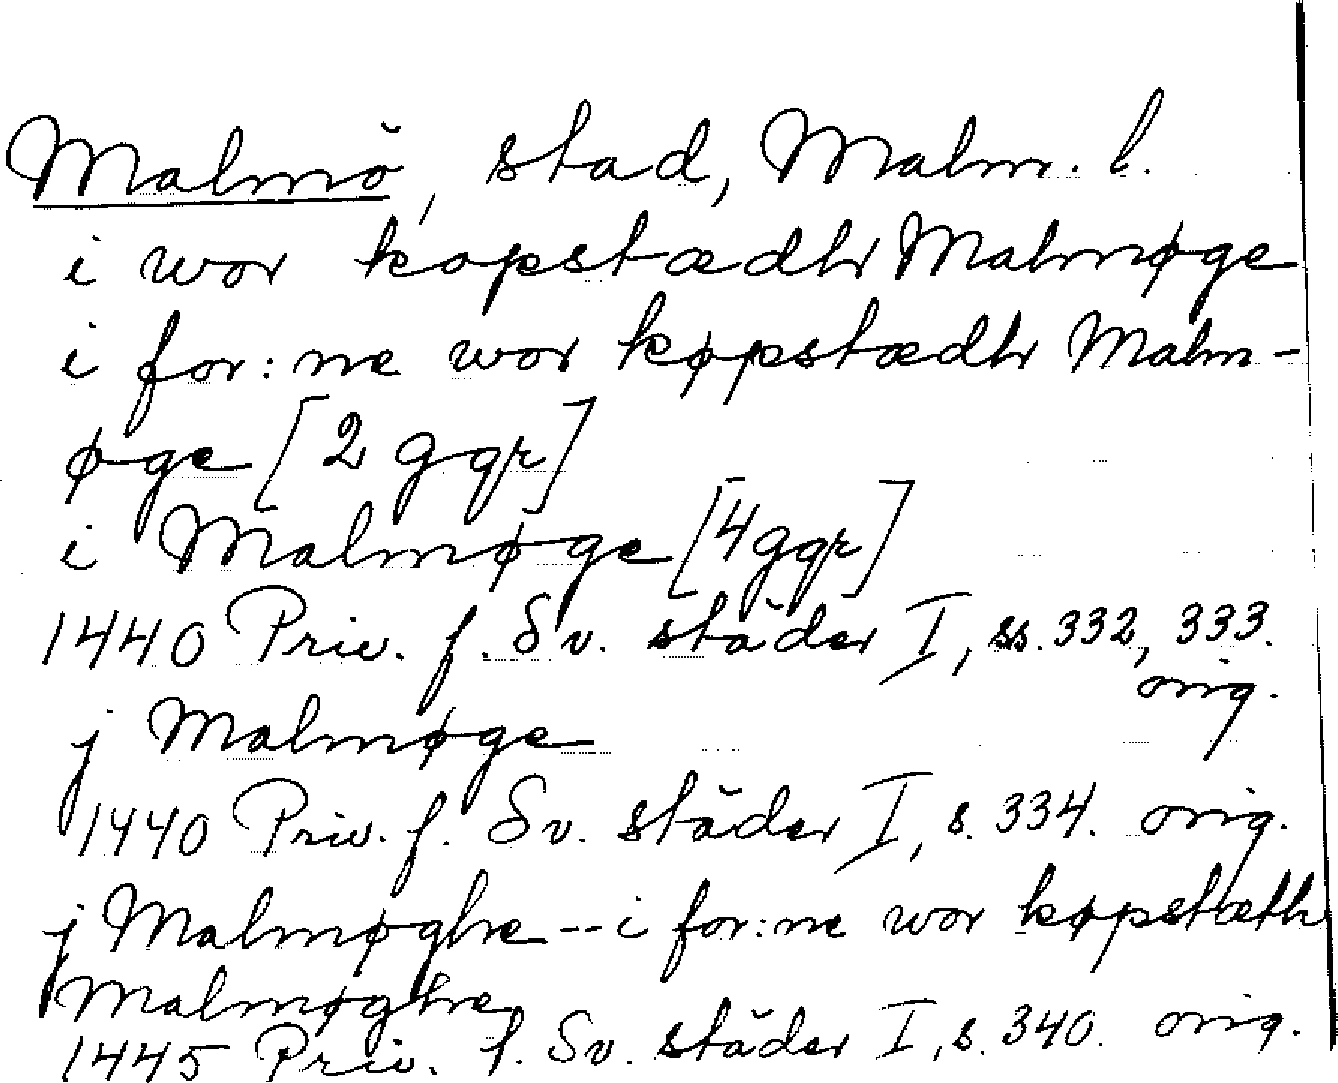 Malmö, stad, Malm. l.
i wor kopstædh Malmøge
i for:ne wor køpstædh Malm-
øge [2 ggr]
i Malmøge [4 ggr]
1440 Priv. f. Sv. städer I, ss. 332, 333.
orig.
j Malmøge
1440 Priv. f. Sv. städer I, s. 334. orig.
j Malmøghe -- i for:ne wor køpstæth
Malmøghe
1445 Priv. f. Sv. städer I, s. 340. orig.